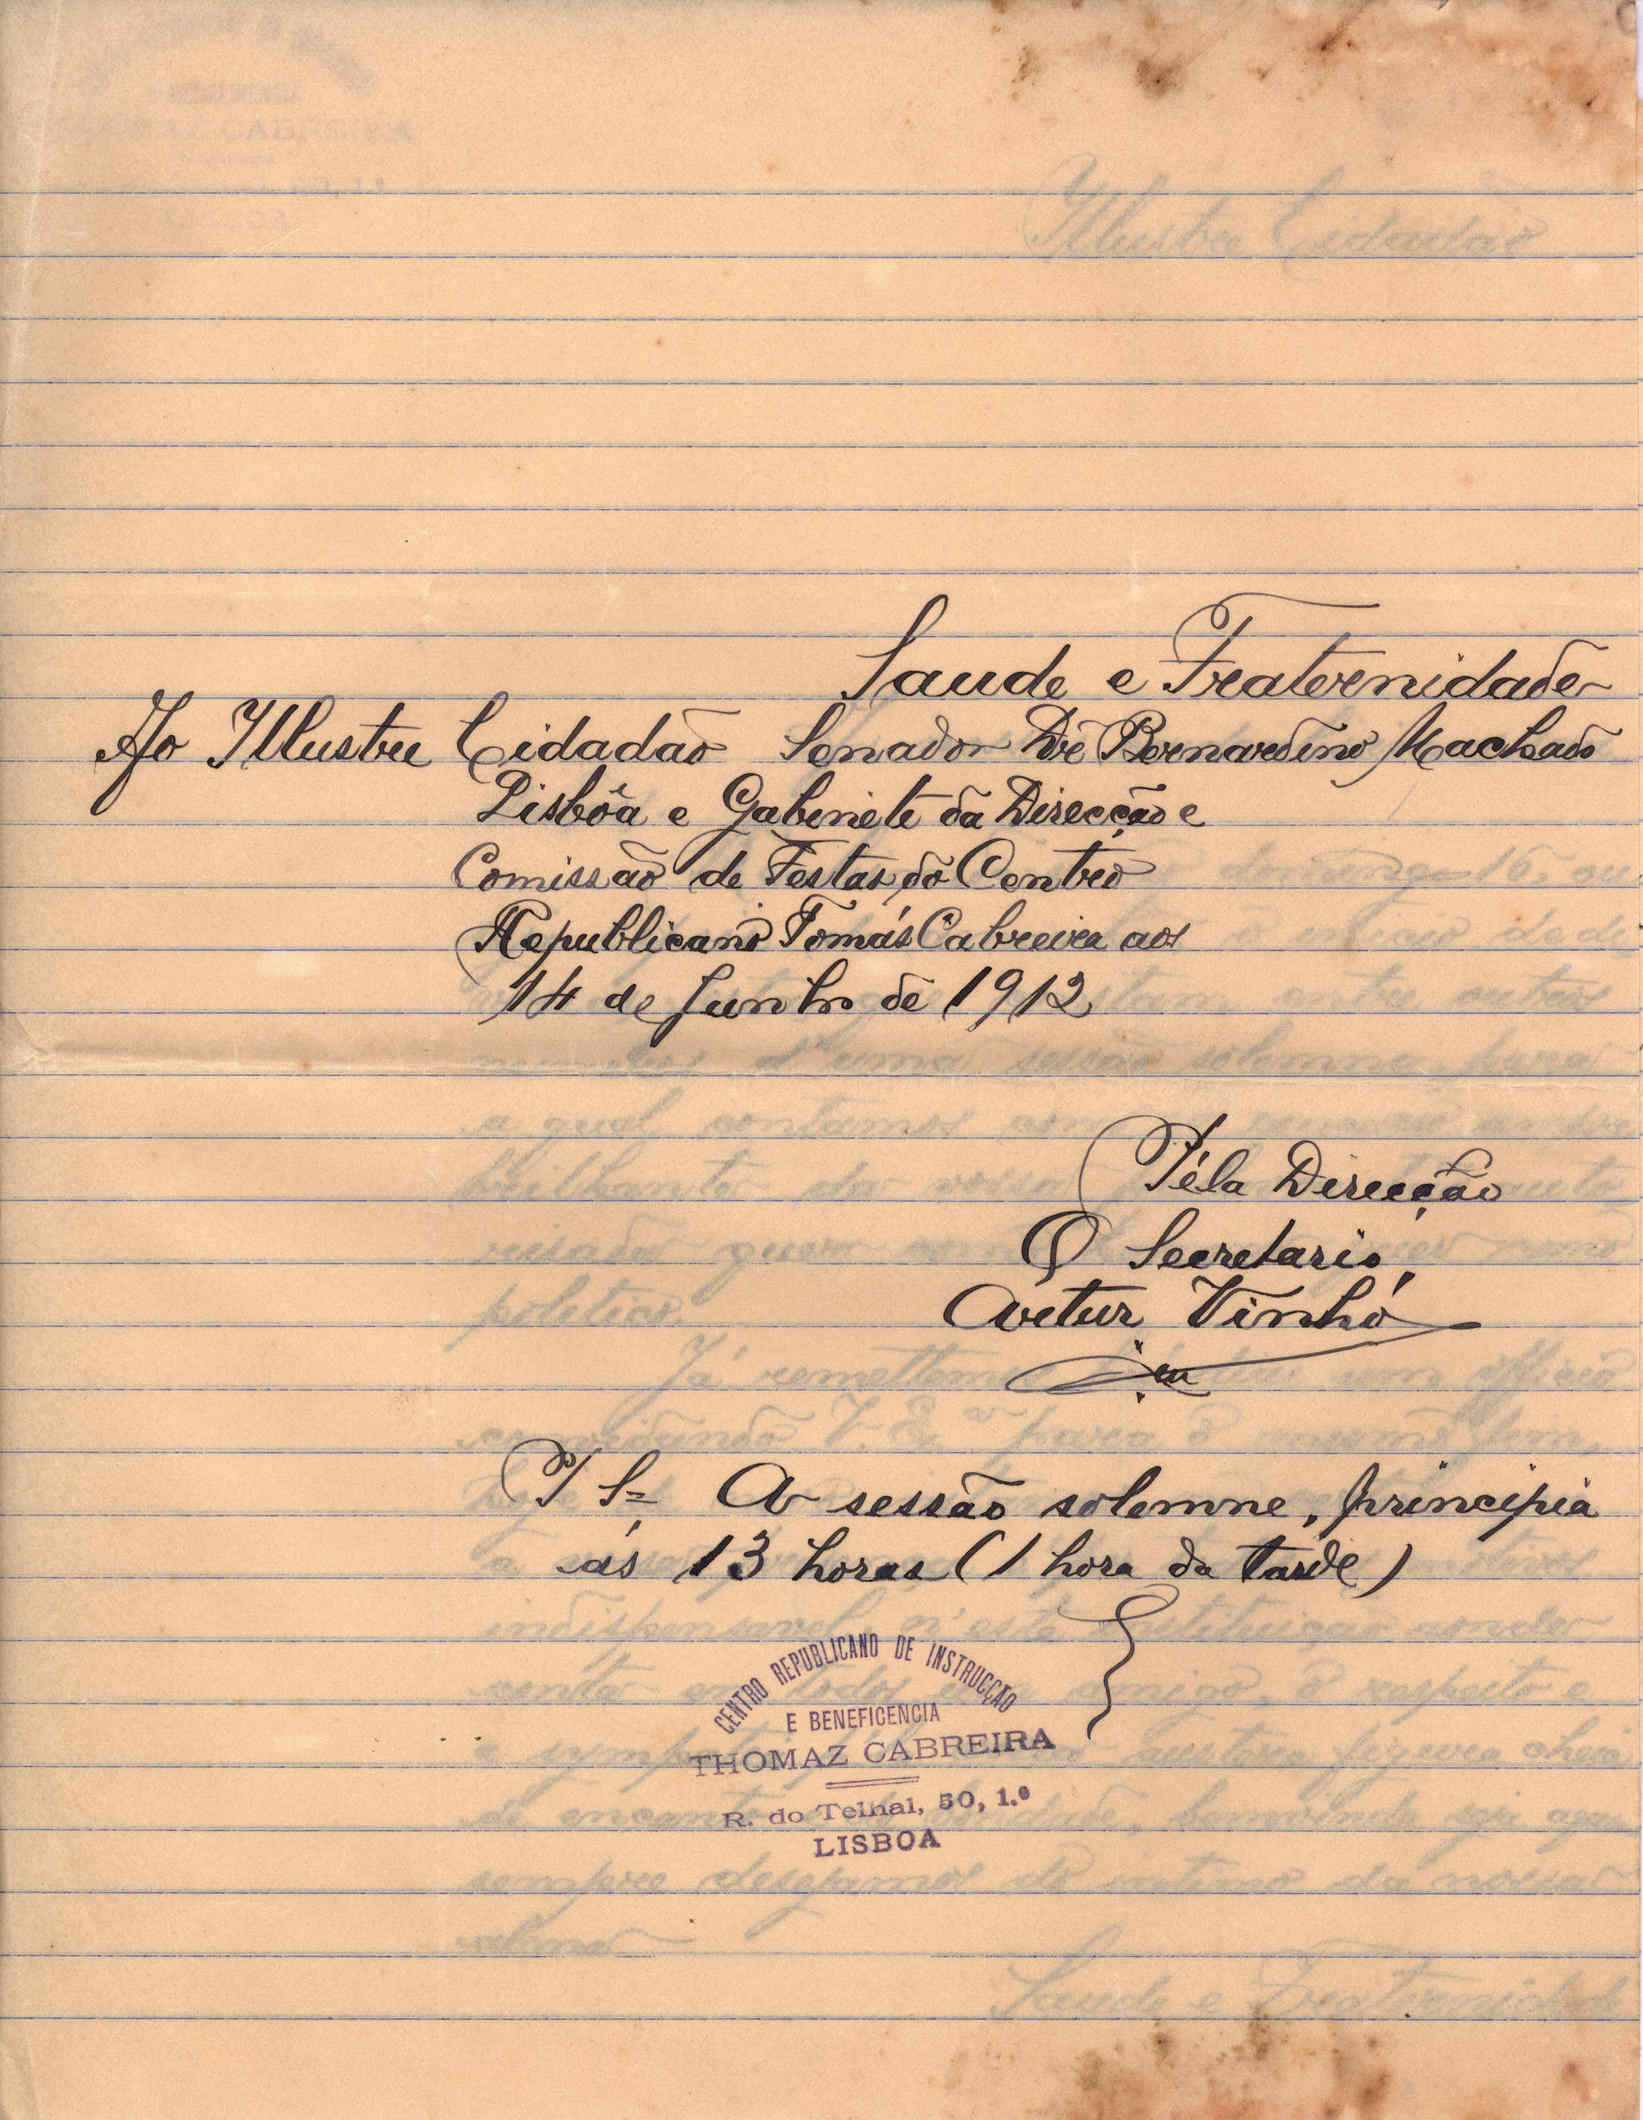 Saude e Fraternidade
Ao Illustre Cidadão Senador Dr. Bernardino Machado
Lisbôa e Gabinete da Direcção e
Comissão de Festas do Centro
Republicano Tomás Cabreira aos
14 de Junho de 1912
Péla Direcção
O Secretario,
Artur Vinhó
P S= A sessão solemne, principia
ás 13 horas (1 hora da tarde)
CENTRO REPUBLICANO DE INSTRUCÇÃO
E BENEFICENCIA
THOMAZ CABREIRA
R. do Telhal, 50, 1.º
LISBOA